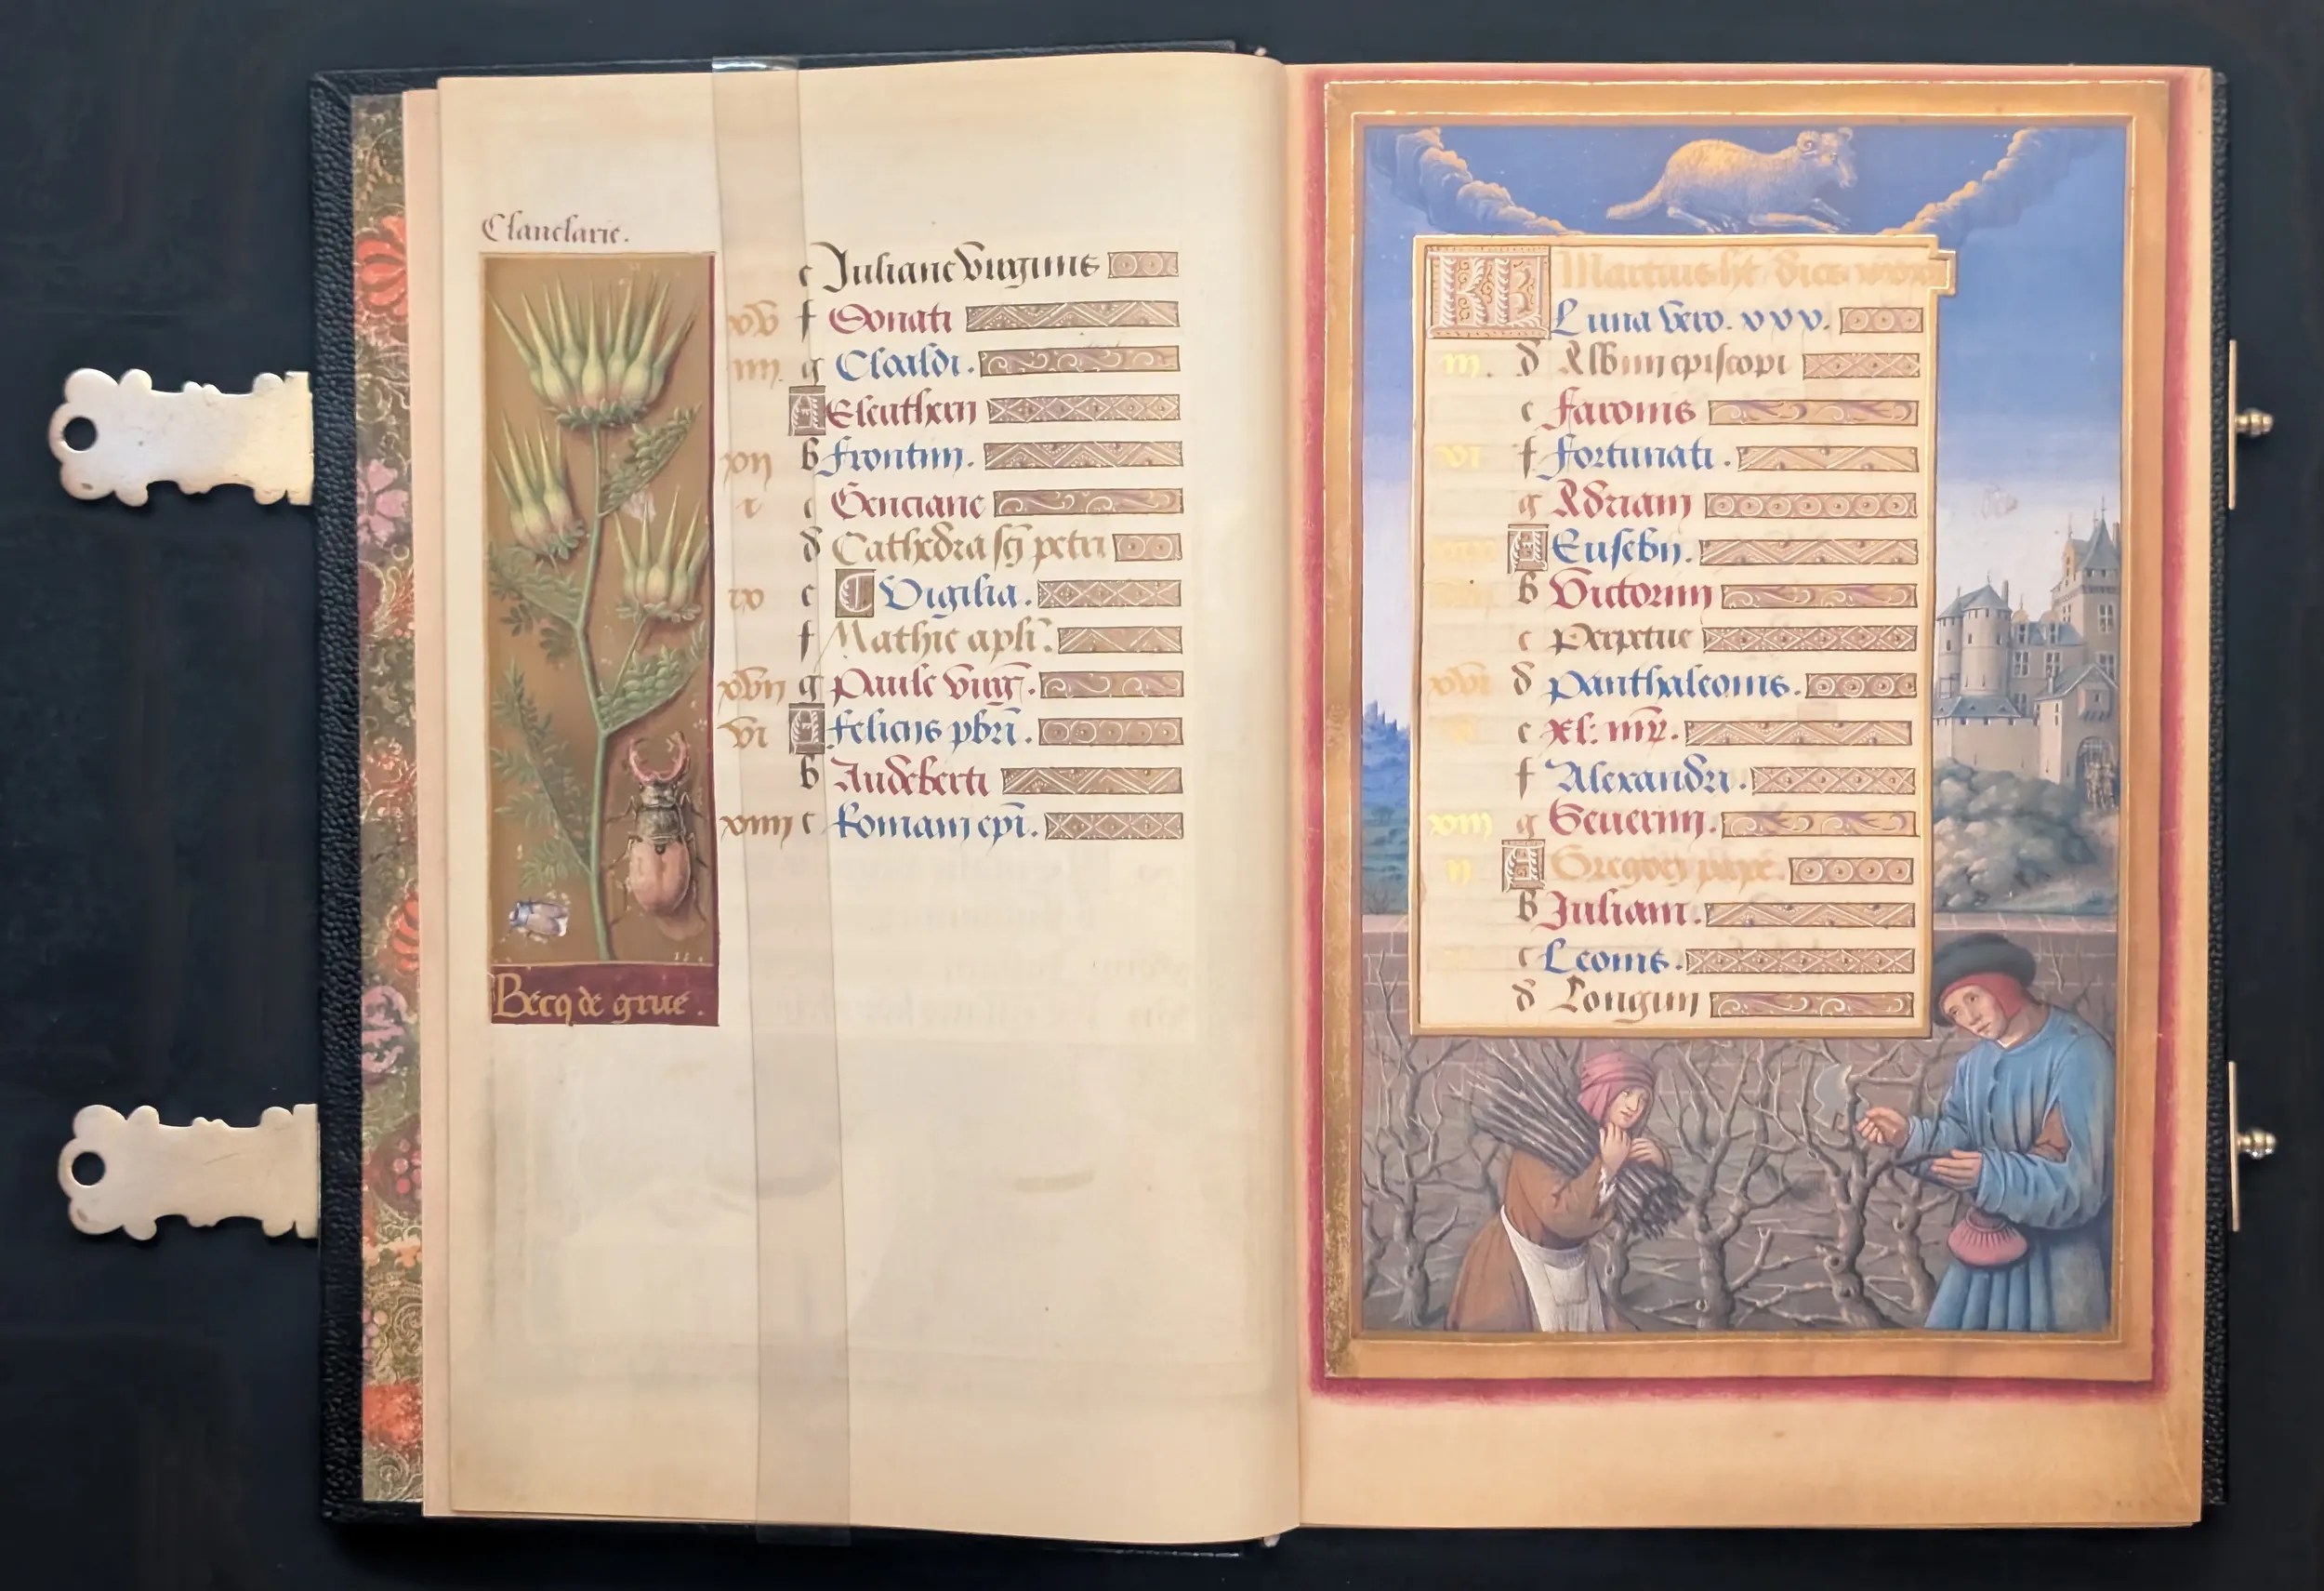 Clanclarie.
e Juliane virginis
xv f Donati
iiii. g Cloaldi.
A Eleutherii
xii b Frontini.
i c Genciane
d Cathedra scī petri
ix e Vigilia.
f Mathie apli.
xvii g Paule virg.
vi A Felicis pbrī.
b Audeberti
xiiii c Romani epī.
Becq de grue.
KL Martius ht dies xxxi
Luna vero. xxx.
iii. d Albini episcopi
e Faronis
vi f Fortunati.
g Adriani
A Eusebii.
b Victorini
c Perpetue
xvi d Panthaleonis.
e xl: mr̄.
f Alexandri.
xiii g Severini.
ii A Gregorii pape.
b Juliani.
c Leonis.
d Longini